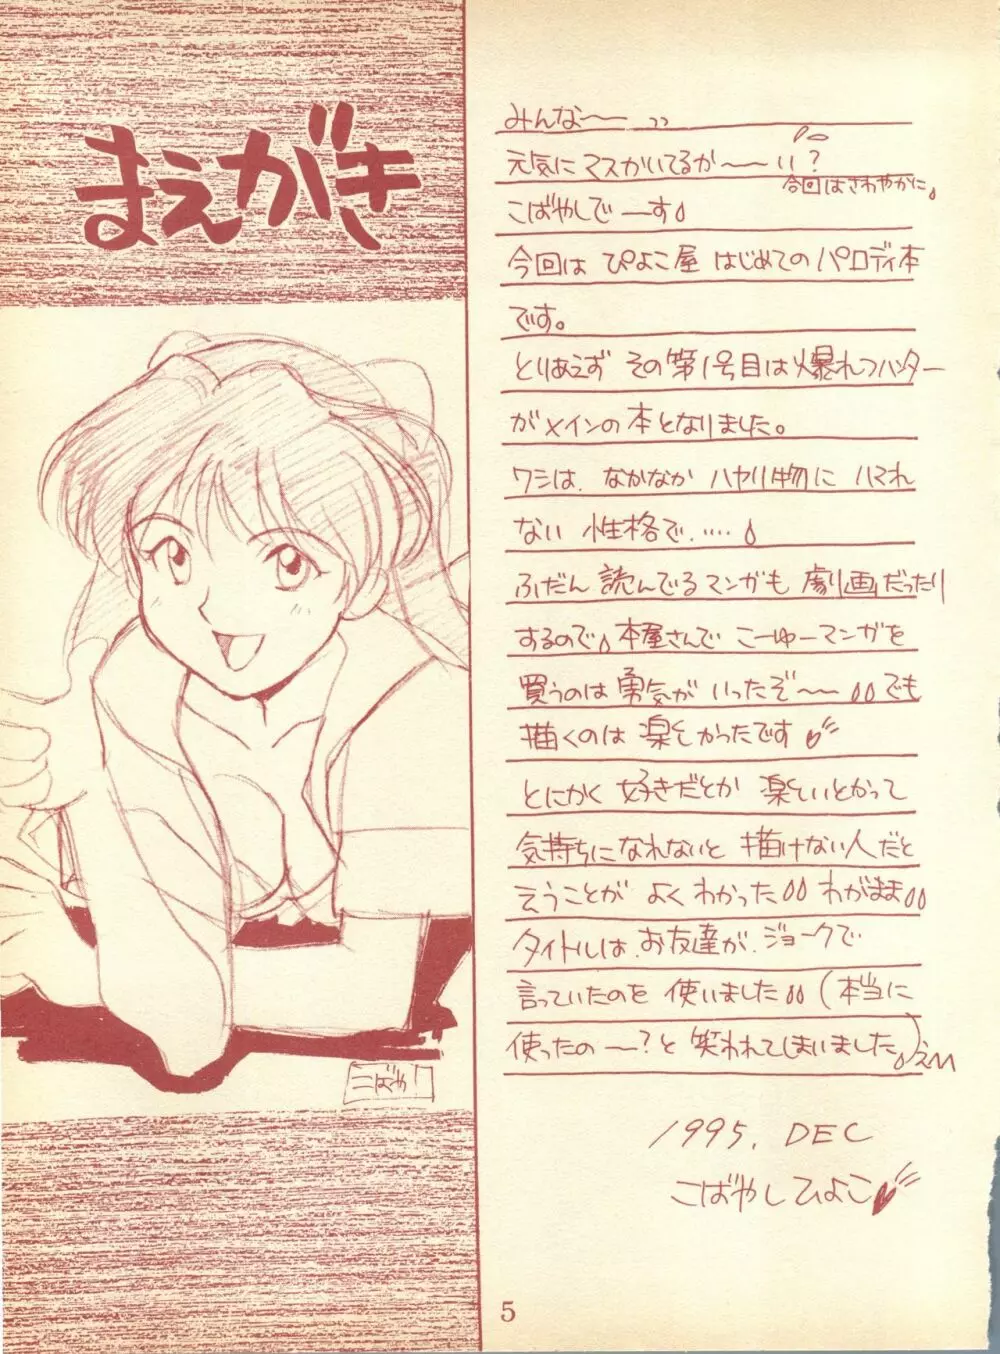 まえがき
みんな〜〜ッッ
元気にマスかいてるか〜〜い?
今回はさわやかに。
こばやしで―す
今回は ぴよこ屋 はじめてのパロディ本
です。
とりあえず その第1号目は爆れつハンター
がメインの本となりました。
ワシは、なかなか ハヤリ物に ハマれ
ない 性格で.....
ふだん 読んでるマンガも 劇画だったり
するので、本屋さんで こーゆーマンガを
買うのは勇気が いったぞ〜〜 でも
描くのは 楽しかったです
とにかく 好きだとか 楽しいとかって
気持ちになれないと 描けない人だと
言うことが よくわかった わがまま
タイトルは、お友達が、ジョークで
言っていたのを 使いました (本当に
使ったの―?と 笑われてしまいました)
1995. DEC
こばやしひよこ
こばや
5